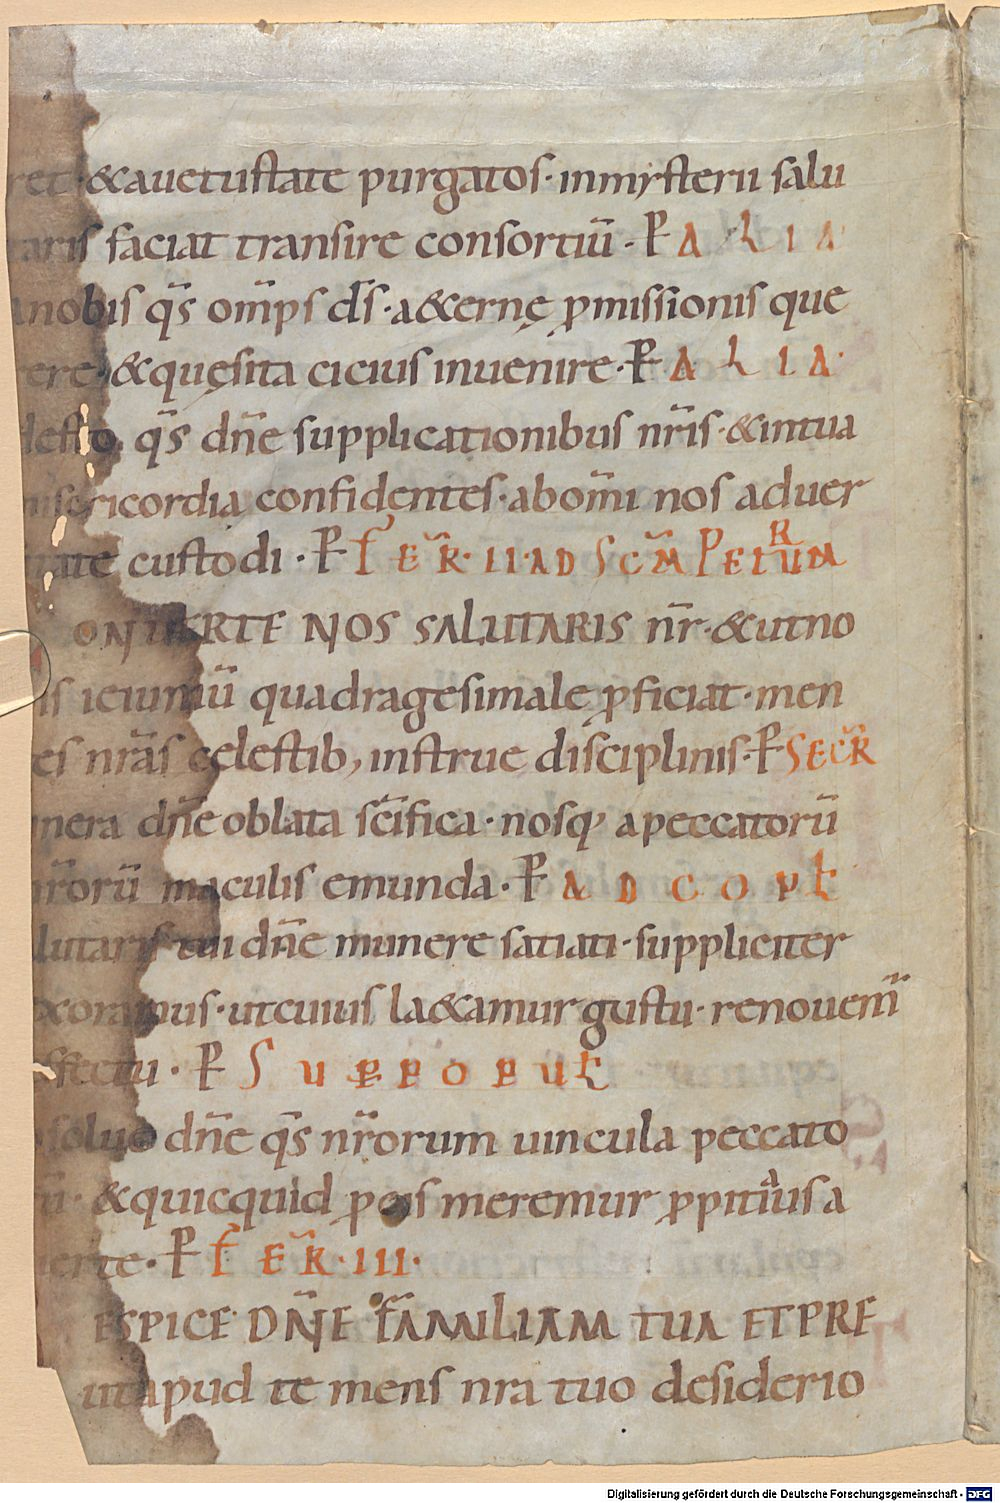 ret · &auetustate purgatos · inmysterii salu
taris faciat transire consortiū · P̄ ALIA
a nobis q̄s om̄ps d̄s · a&ernę p̱missionis que
rere · &quęsita cicius inuenire · P̄ ALIA ·
desto q̄s dn̄e supplicationibus nr̄is · &intua
misericordia confidentes · abom̄i nos aduer
tate custodi · P̄ FER̄ · II · AD SC̄M PETRUM
ONUERTE NOS SALUTARIS nr̄ · &utno
is ieiuniū quadragesimale p̱ficiat · men
es nr̄as celestib, instrue disciplinis · P̄ SECR̄
nera dn̄e oblata sc̄ifica · nosq, apeccatorū
nr̄orū maculis emunda · P̄ AD COPL̄
lutaris tui dn̄e munere satiati · suppliciter
exoramus · utcuius la&amur gustu · renouem̄
effectu · P̄ SUPPOPUL̄
bsolue dn̄e q̄s nr̄orum uincula peccato
rū · &quicquid p̱ eis meremur p̱pitiatus a
uerte · P̄ FER̄ · III ·
ESPICE DN̄E FAMILIAM TUA ET PRE
ut apud te mens nra tuo desiderio
Digitalisierung gefördert durch die Deutsche Forschungsgemeinschaft - DFG